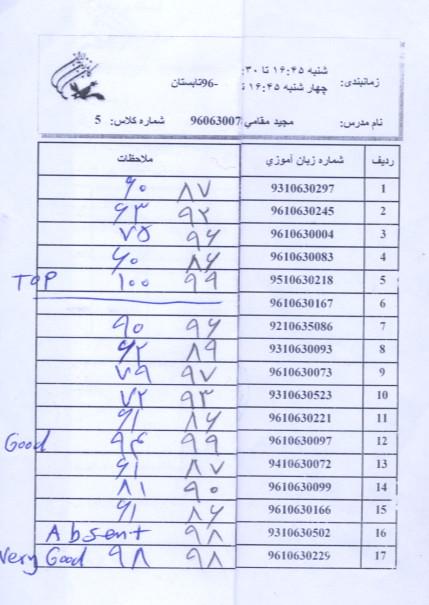 زمانبندی: شنبه ۱۶:۴۵ تا ۳۰:
چهار شنبه ۱۶:۴۵ -96تابستان
نام مدرس: مجید مقامی 96063007 شماره کلاس: 5
ردیف شماره زبان آموزي ملاحظات
1 9310630297 ۸۷ ۶۰
2 9610630245 ۹۲ ۶۳
3 9610630004 ۹۶ ۷۵
4 9610630083 ۸۶ ۶۰
5 9510630218 ۹۹ ۱۰۰ TOP
6 9610630167
7 9210635086 ۹۶ ۹۰
8 9310630093 ۸۹ ۶۲
9 9610630073 ۹۷ ۷۹
10 9310630523 ۹۳ ۷۲
11 9610630221 ۸۶ ۶۱
12 9610630097 ۹۹ ۹۴ Good
13 9410630072 ۸۷ ۶۱
14 9610630099 ۹۰ ۸۱
15 9610630166 ۸۶ ۶۱
16 9310630502 ۹۸ Absent
17 9610630229 ۹۸ ۹۸ Very Good